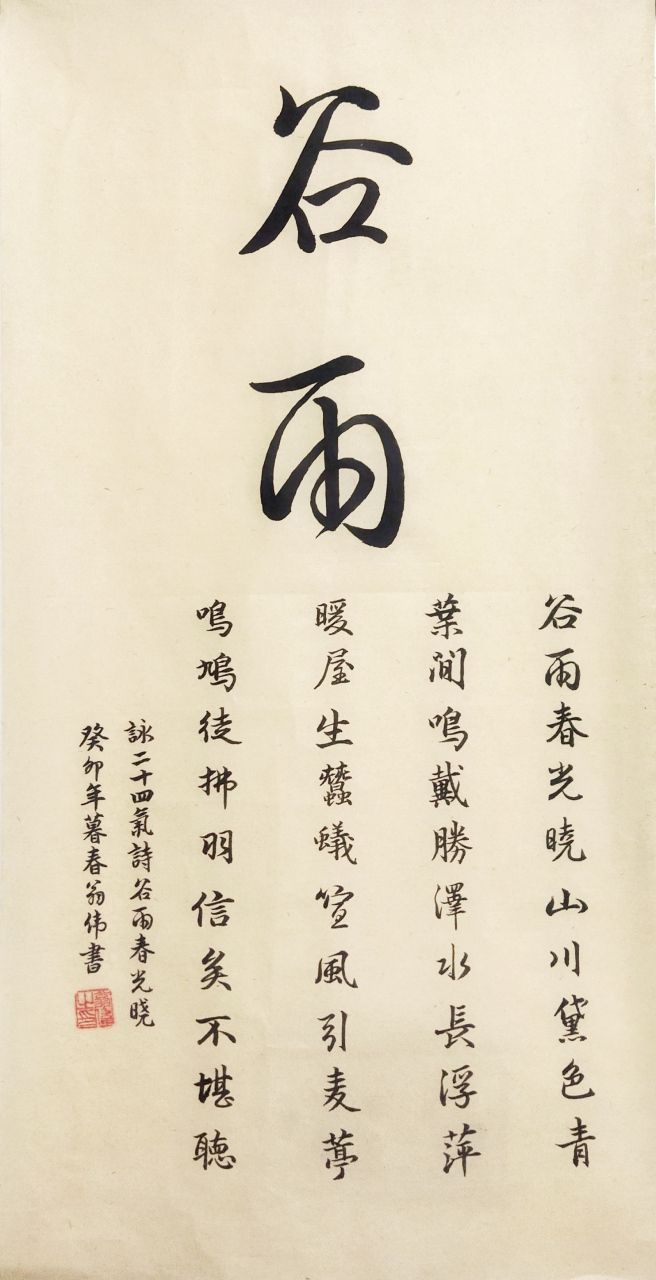 谷雨
谷雨春光晓山川黛色青
葉間鳴戴勝澤水長浮萍
暖屋生蠶蟻風引麦葶
鳴鳩徒拂羽信矣不堪聽
詠二十四氣詩谷雨春光晓
癸卯年暮春翁伟書